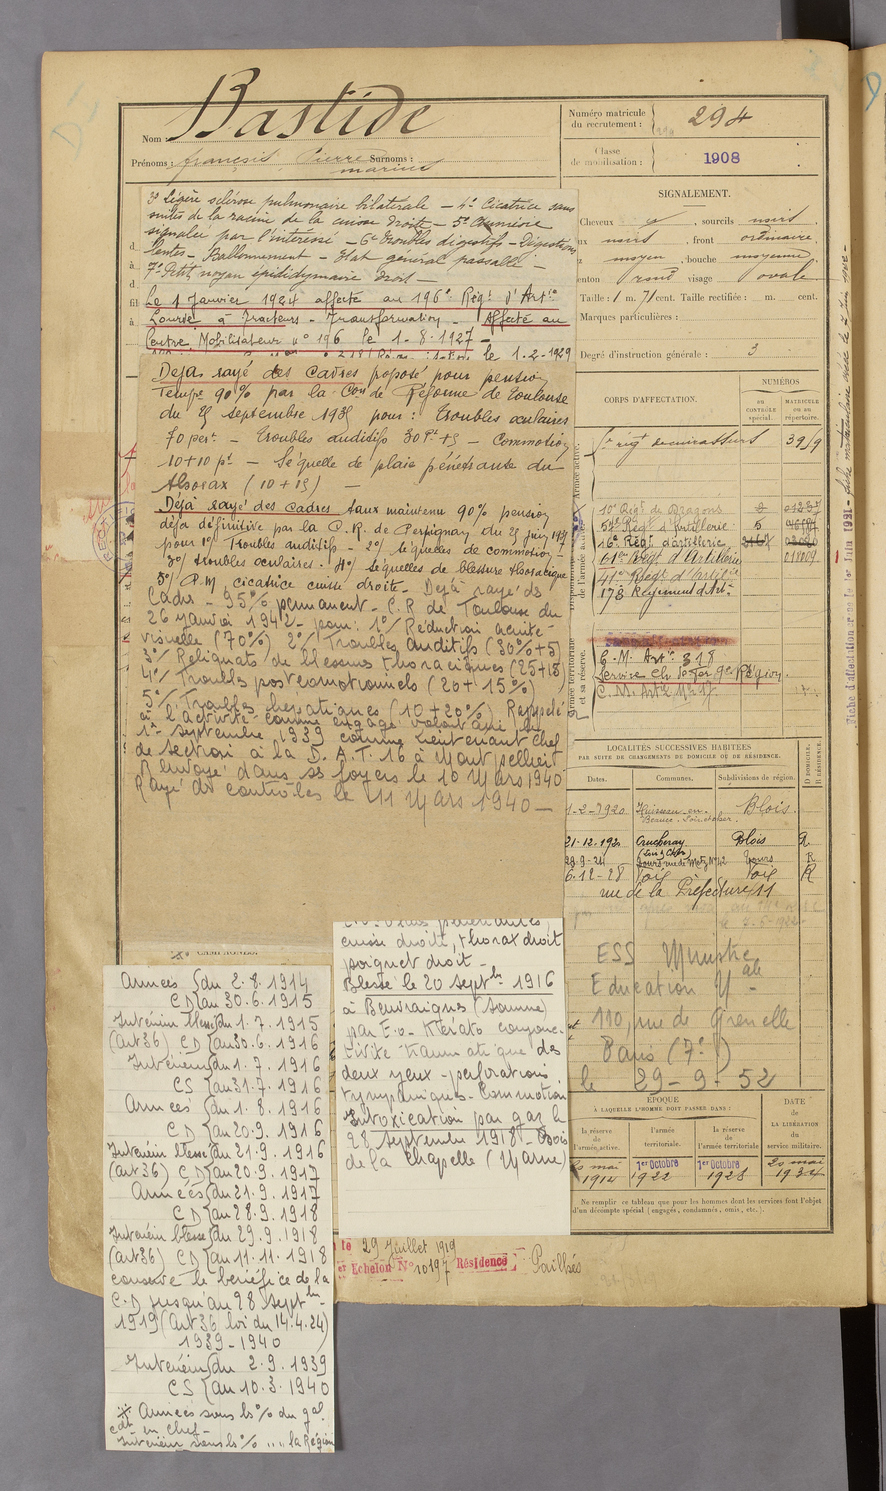 Bastide
Nom :
Prénoms : françois Pierre Surnoms :
marius
Numéro matricule
du recrutement :
294
Classe
de mobilisation :
1908
3° Légère sclérose pulmonaire bilatérale — 4° Cicatrice sans
suites de la racine de la cuisse droite — 5°
signalée par l'intéressé — 6° Troubles digestifs — Digestions
lentes — Ballonnement — Etat général passable —
7° Petit noyau épididymaire droit —
Le 1 Janvier 1924 affecté au 196e Régt d'Artie
Lourde à Tracteurs — Transformation — Affecté au
Centre Mobilisateur n° 196 le 1-8-1927 —
le 1-2-1929
Dejà rayé des Cadres proposé pour pension
Tempre 90% par la Con de Réforme de Toulouse
du septembre 1935 pour : Troubles oculaires
70 pert — Troubles auditifs 30 Pt +5 — Commotion
10+10 pt — Séquelle de plaie pénétrante du
thorax (10+15) —
Déjà rayé des cadres taux maintenu 90% pension
déjà définitive par la C.R. de Perpignan du Juin
pour 1° Troubles auditifs — 2° Séquelles de commotion —
3° troubles oculaires — 4° Séquelles de blessure thoracique
5° P.M. cicatrice cuisse droite — Dejà rayé des
Cadres — 95% permanent — C.R de Toulouse du
26 janvier 1942 — pour : 1° Réduction acuité
visuelle (70%) 2° Troubles auditifs (30%+5)
3° Reliquats de blessures thoraciques (25+15)
4° Troubles postcommotionnels (20+15%)
5° Troubles hépatiques (10+20%) Rappelé
à l'activité comme engagé volontaire le
1er septembre 1939 comme lieutenant chef
de section à la D.A.T. 16 à Montpellier
Renvoyé dans ses foyers le 10 Mars 1940
Rayé des contrôles le 11 Mars 1940 —
SIGNALEMENT.
Cheveux , sourcils noirs
noirs , front ordinaire
moyen , bouche moyenne
enton rond visage ovale
Taille : 1 m. 71 cent. Taille rectifiée : m. cent.
Marques particulières :
Degré d'instruction générale : 3
CORPS D'AFFECTATION.
NUMÉROS
AU
CONTRÔLE
spécial.
MATRICULE
OU AU
répertoire.
Armée active.
régt de cuirassiers
10e Régt de Dragons
54e Régt d'Artillerie 5
16e Régt d'artillerie
61eme Régt d'Artillerie
41eme Régt d'Artie
178 Régiment d'Art.
Armée territoriale
et sa réserve.
C.M. Artie 318
Service Ch. de fer 9e Région
C.M. Artie N° 17
LOCALITÉS SUCCESSIVES HABITÉES
PAR SUITE DE CHANGEMENTS DE DOMICILE OU DE RÉSIDENCE.
D DOMICILE.
R RÉSIDENCE.
Dates.
Communes.
Subdivisions de région.
1-2-1920 Huisseau-en- Blois
Beauce. Loir et cher.
21-12-192 Crucheray Blois R
(Loir et Cher)
Tours rue de Metz N°42 Tours R
6-12-28 Foix Foix R
rue de la Préfecture 11
ESS Ministre
Education Nale
110, rue de Grenelle
Paris (7e)
le 29-9-52
cuisse droite, thorax droit
poignet droit —
Blessé le 20 septbre 1916
à Beuvraignes (Somme)
par E.o. Kérato conjonc-
tivite traumatique des
deux yeux — perforations
tympaniques — Commotion
Intoxication par gaz le
28 septembre 1918 — Bois
de la Chapelle (Marne)
Armées {du 2.8.1914
CD {au 30.6.1915
Intérieur blessé {du 1.7.1915
(art 36) CD {au 30.6.1916
Intérieur {du 1.7.1916
CS {au 31.7.1916
Armées {du 1.8.1916
CD {au 20.9.1916
Intérieur blessé {du 21.9.1916
(art 36) CD {au 20.9.1917
Armées {du 21.9.1917
CD {au 28.9.1918
Intérieur blessé {du 29.9.1918
(art 36) CD {au 11.11.1918
conserve le bénéfice de la
C.D jusqu'au 28 septbre
1919 (art 36 loi du 14.4.24)
1939-1940
Intérieur {du 2.9.1939
CS {au 10.3.1940
Armées sous ls % du gal
cdt en chef —
Intérieur sous ls % ,, ,, la Région
ÉPOQUE
À LAQUELLE L'HOMME DOIT PASSER DANS :
DATE
de
LA LIBÉRATION
du
service militaire.
la réserve
de
l'armée active.
l'armée
territoriale.
la réserve
de
l'armée territoriale
mai
1914
1er Octobre
1922
1er Octobre
1928
25 mai
1934
Ne remplir ce tableau que pour les hommes dont les services font l'objet
d'un décompte spécial (engagés, condamnés, omis, etc.).
le 29 Juillet 1919
er Echelon N° 10197 Résidence Pailhès